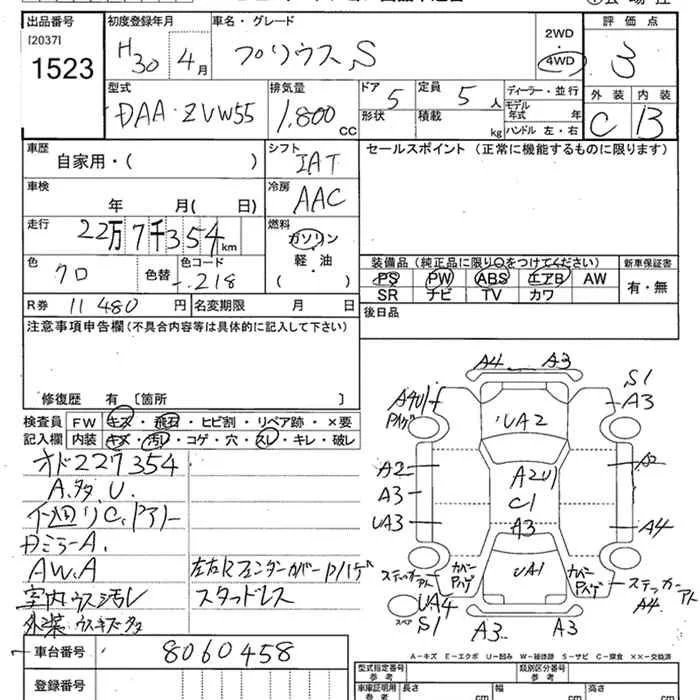 出品番号 初度登録年月 車名・グレード 評価点
[2037]
1523
H30 4月 プリウス S 2WD 4WD 3
型式 排気量 ドア 定員 ディーラー・並行 外装 内装
DAA-ZVW55 1,800 CC 5 5人 モデル年式 年 C B
形状 積載 kg ハンドル 左・右
車歴 シフト セールスポイント (正常に機能するものに限ります)
自家用・( ) IAT
車検 冷房
年 月( 日) AAC
走行 燃料
22万7千354km ガソリン
軽・油
( )
色 色替 色コード
クロ 218
装備品 (純正品に限り○をつけてください) 新車保証書
PS PW ABS エアB AW 有・無
SR ナビ TV カワ
R券 11480円 名変期限 月 日
後日品
注意事項申告欄(不具合内容等は具体的に記入して下さい)
修復歴 有 〔箇所 〕
検査員記入欄
FW キズ・飛石・ヒビ割・リペア跡・×要
内装 キズ・汚レ・コゲ・穴・スレ・キレ・破レ
オド227354
A.多.U.
AW.A
室内ウス汚レ
スタッドレス
A4 A3
S1
A4U1 A3
Pハゲ
UA2
A2
A3
UA3
A2U1
C1
A3
A2
A4
UA1
カバー Pハゲ
カバー Pハゲ
ステッカーアト
ステッカーアト
A4
UA4
S1
スペア
A3 A3
A-キズ E-エクボ U-凹み W-補修跡 S-サビ C-腐食 XX-交換済
車台番号 8060458
登録番号
型式指定番号 参考 類別区分番号 参考
車庫証明用 参考 長さ cm 幅 cm 高さ cm